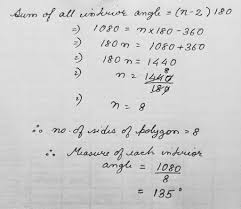 Sum of all interior angle = (n-2) 180
⇒ 1080 = n×180 - 360
⇒ 180n = 1080+360
⇒ 180n = 1440
⇒ n = 1440/180 8
⇒ n = 8
∴ no. of sides of polygon = 8
∴ Measure of each interior
angle = 1080/8
= 135°